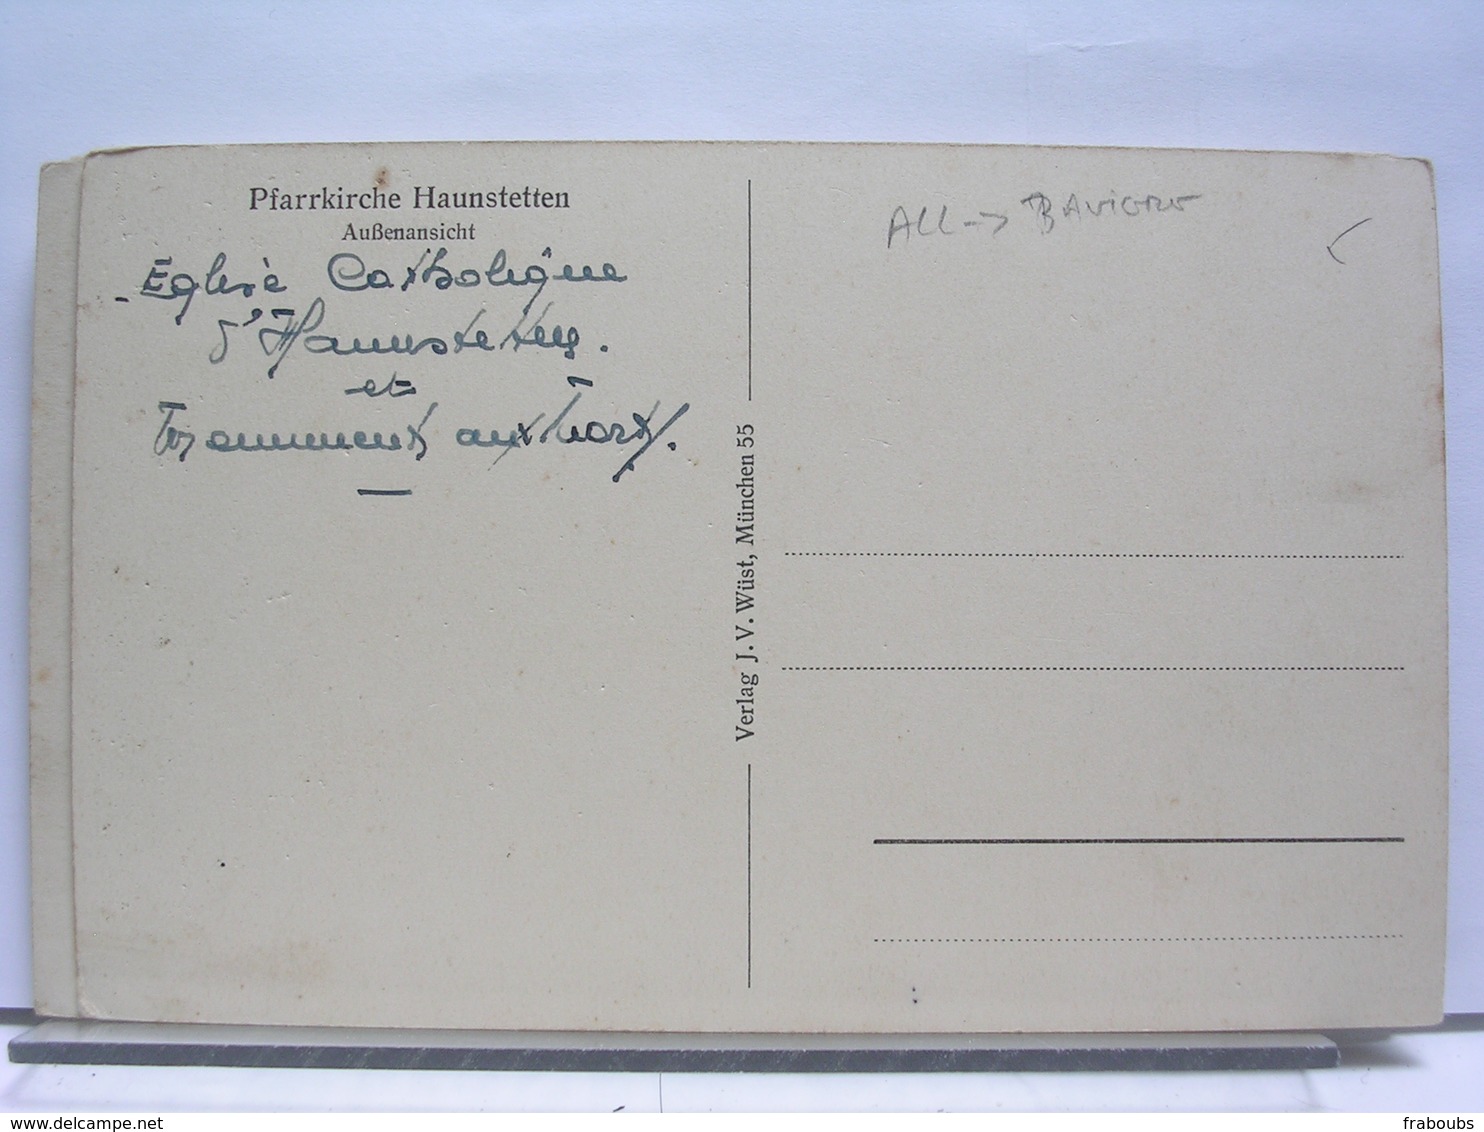 Pfarrkirche Haunstetten
Außenansicht
- Eglise Catholique
d'Haunstetten.
et
monument aux morts.
Verlag J. V. Wüst, München 55
ALL -> BAVIERE
delcampe.net
fraboubs